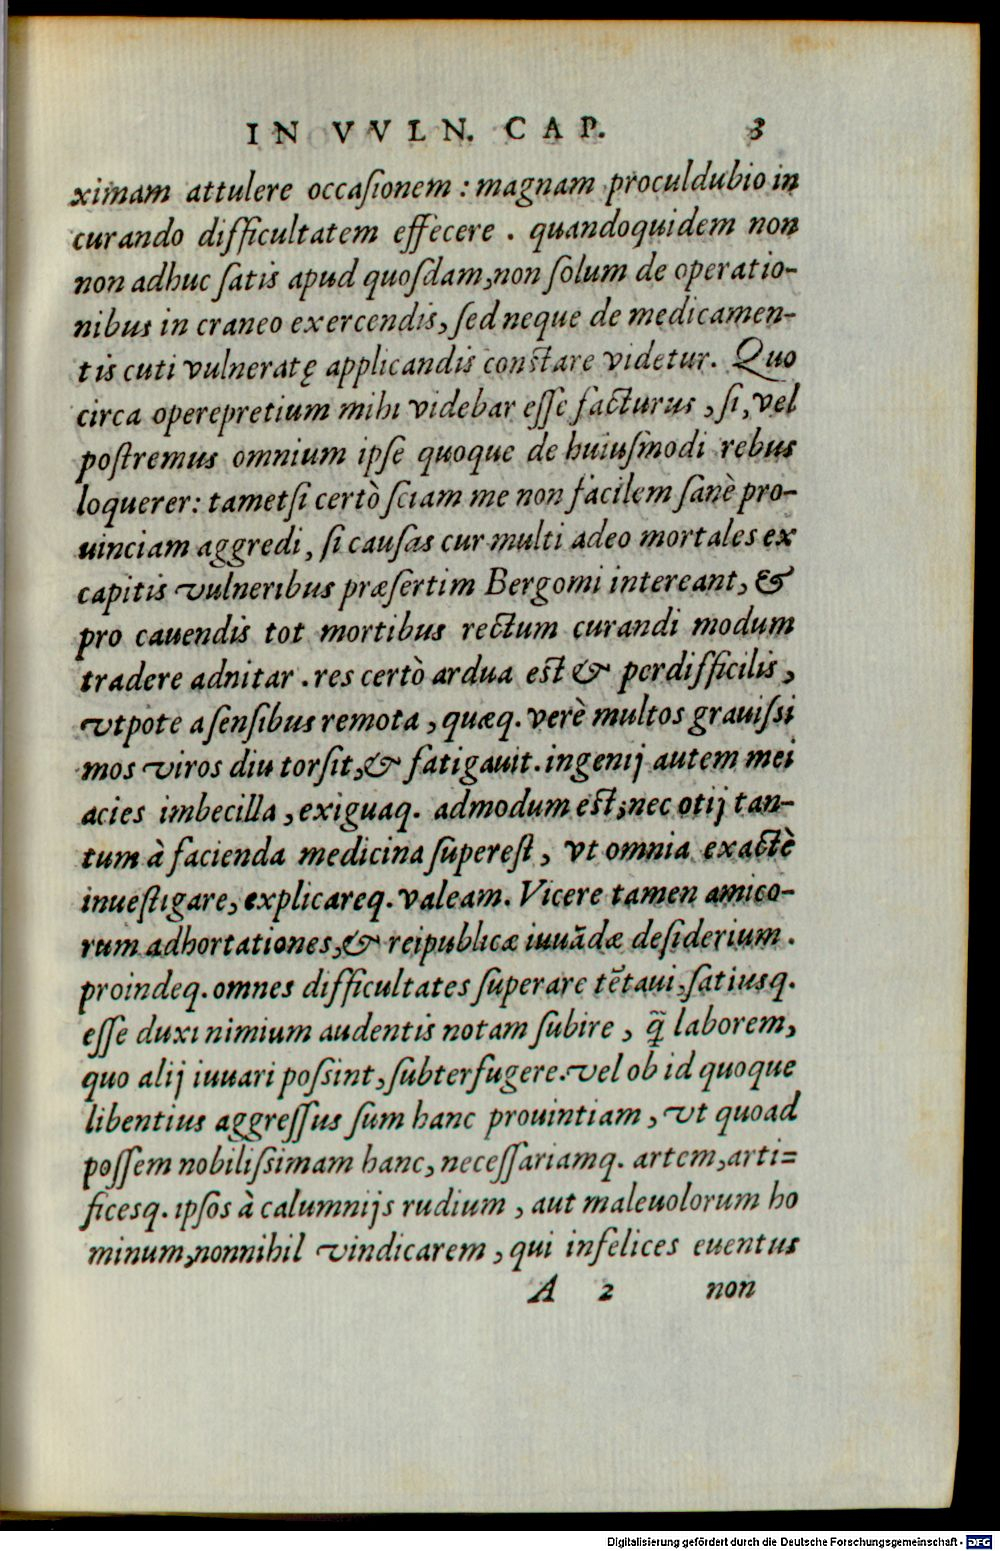 IN VVLN. CAP. 3
ximam attulere occaſionem : magnam proculdubio in
curando difficultatem effecere . quandoquidem non
non adhuc ſatis apud quoſdam, non ſolum de operatio-
nibus in craneo exercendis, ſed neque de medicamen-
tis cuti vulneratę applicandis conſtare videtur. Quo
circa operepretium mihi videbar eſſe facturus , ſi, vel
poſtremus omnium ipſe quoque de huiuſmodi rebus
loquerer: tametſi certò ſciam me non facilem ſanè pro-
uinciam aggredi, ſi cauſas cur multi adeo mortales ex
capitis vulneribus præſertim Bergomi intereant, &
pro cauendis tot mortibus rectum curandi modum
tradere adnitar . res certò ardua eſt & perdifficilis,
vtpote a ſenſibus remota , quæq. verè multos grauiſsi
mos viros diu torſit, & fatigauit. ingenij autem mei
acies imbecilla , exiguaq. admodum eſt; nec otij tan-
tum à facienda medicina ſupereſt, vt omnia exactè
inueſtigare, explicareq. valeam. Vicere tamen amico-
rum adhortationes, & reipublicæ iuuādæ deſiderium .
proindeq. omnes difficultates ſuperare tētaui, ſatiusq.
eſſe duxi nimium audentis notam ſubire , q̃ laborem,
quo alij iuuari poſsint, ſubterfugere. vel ob id quoque
libentius aggreſſus ſum hanc prouintiam , vt quoad
poſſem nobiliſsimam hanc, neceſſariamq. artem, arti=
ficesq. ipſos à calumnijs rudium , aut maleuolorum ho
minum, nonnihil vindicarem , qui infelices euentus
A 2 non
Digitalisierung gefördert durch die Deutsche Forschungsgemeinschaft - DFG